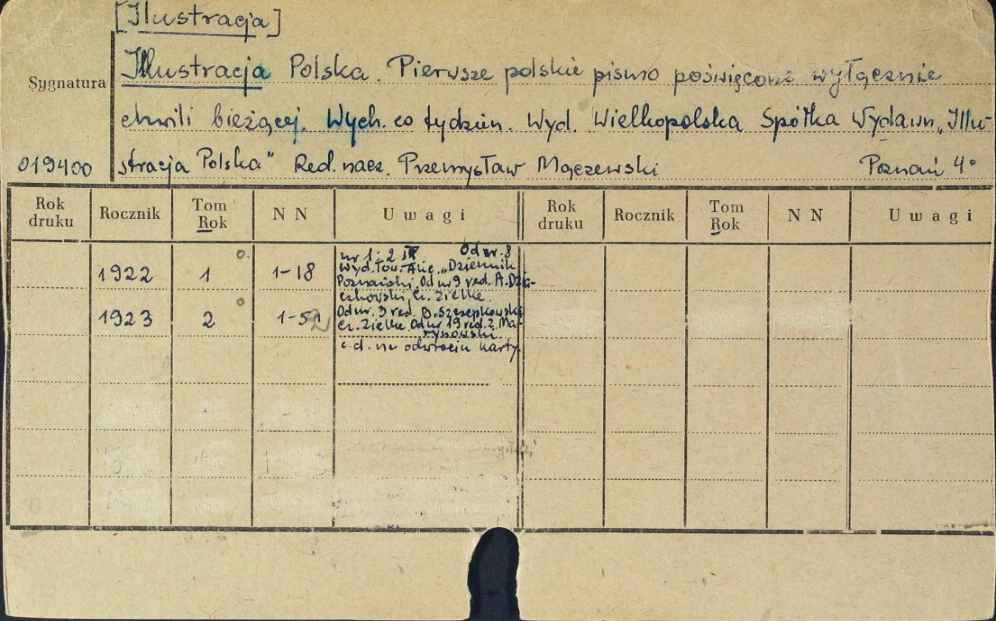 [Ilustracja]
Sygnatura
Illustracja Polska. Pierwsze polskie pismo poświęcone wyłącznie
chwili bieżącej. Wych. co tydzień. Wyd. Wielkopolska Spółka Wydawn. „Illu-
019400 stracja Polska" Red. nacz. Przemysław Mączewski Poznań 4°
Rok druku Rocznik Tom Rok N N Uwagi Rok druku Rocznik Tom Rok N N Uwagi
1922 1 1-18 nr 1-2 Od nr. 8
Wyd. Tow. Akc. „Dziennik
Poznański. Od nr 9 red. A.
Cz. Zielke.
1923 2 1-52 Od nr. 3 red. B. Szczepkowski
Cz. Zielke Od nr 19 red. Z. Ma-
rynowski
c. d. na odwrocie karty